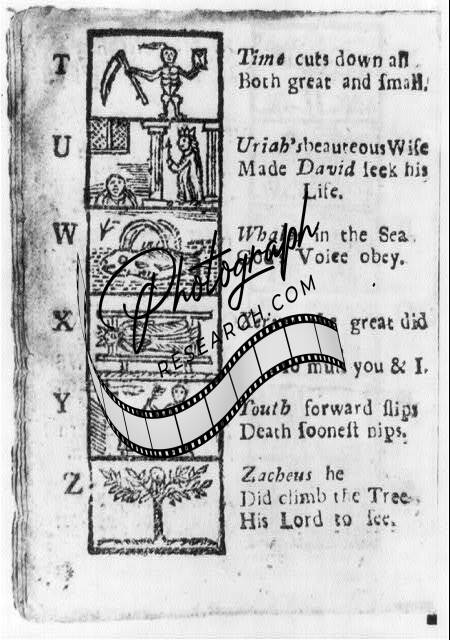 T
Time cuts down all
Both great and ſmall.
U
Uriah's beauteous Wife
Made David ſeek his
Life.
W
in the Sea
Voice obey.
X
great did
you & I.
Y
Youth forward ſlips
Death ſooneſt nips.
Z
Zacheus he
Did climb the Tree
His Lord to ſee.
Photograph
RESEARCH.COM